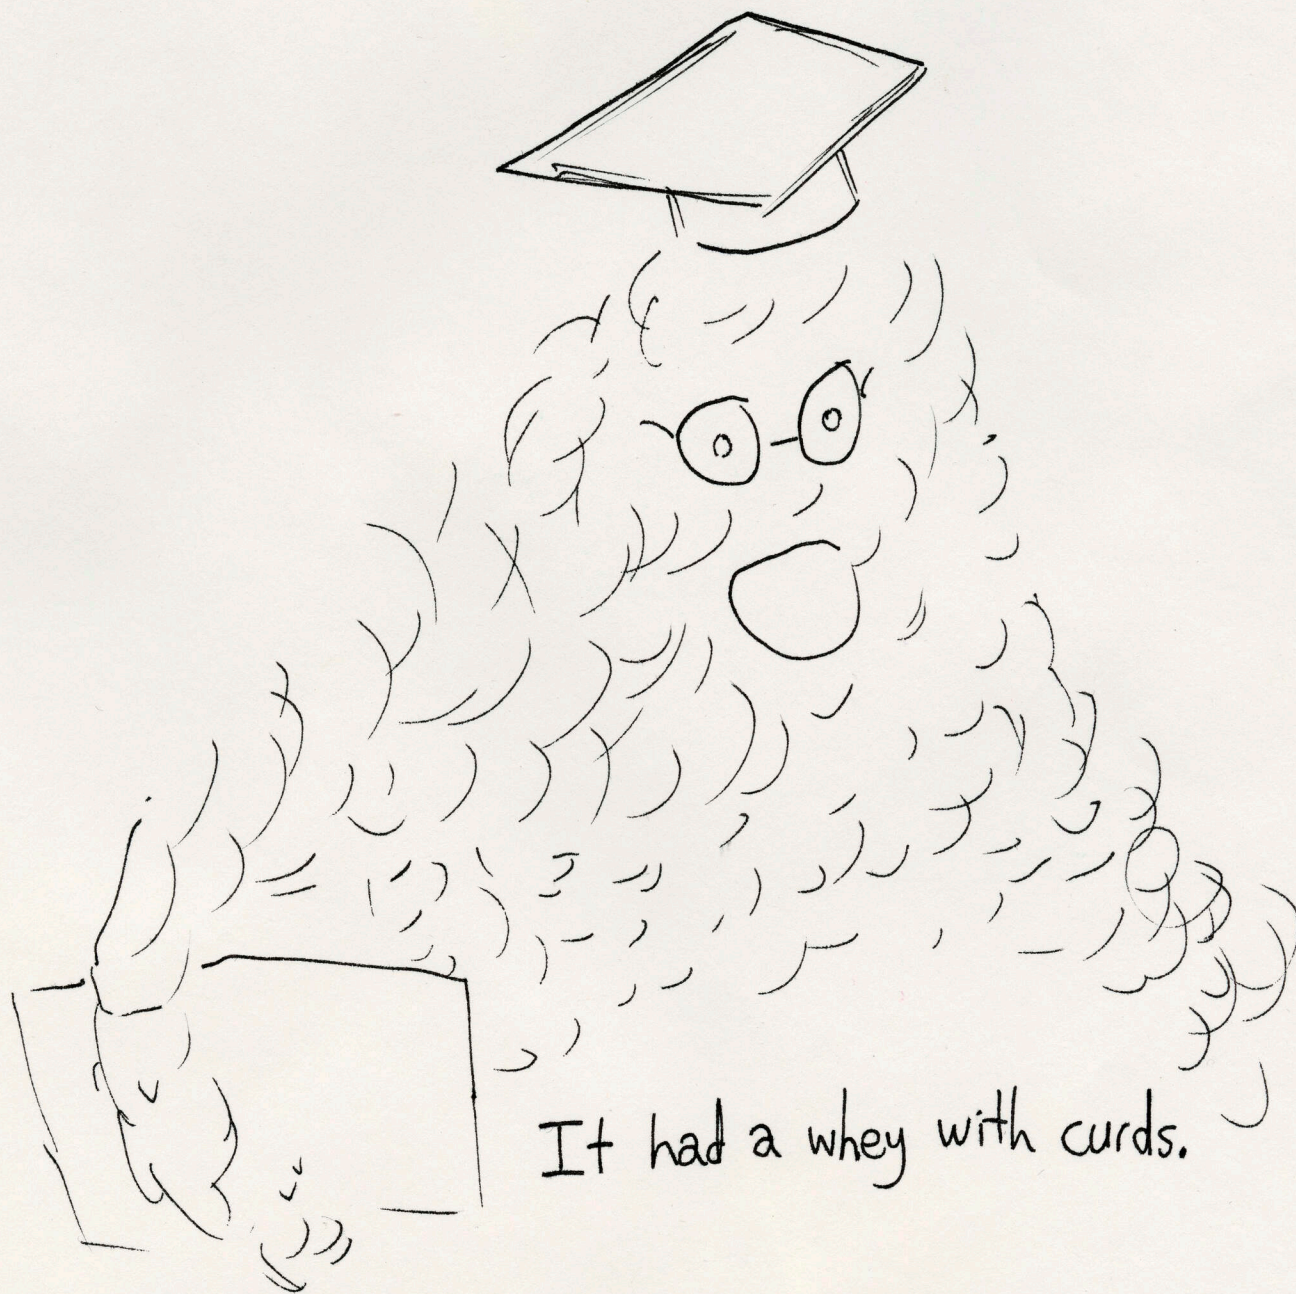 It had a whey with curds.